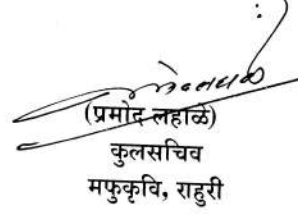 (प्रमोद लहाळे)
कुलसचिव
मफुकृवि, राहुरी